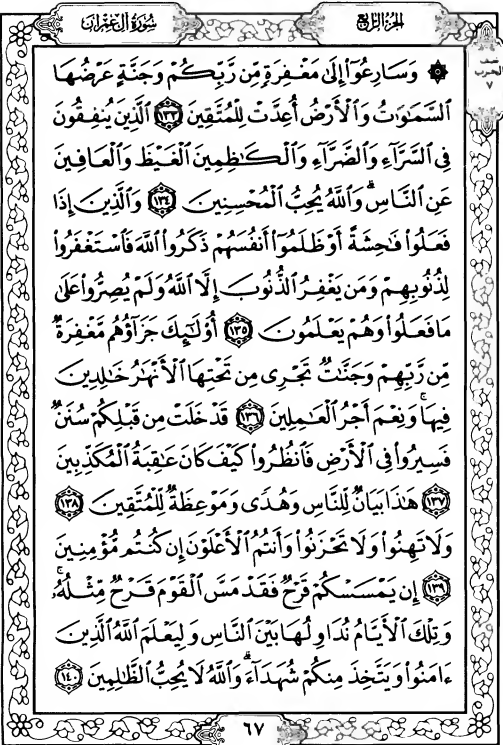 سُورَةُ آلِ عِمْرَان
الجُزْءُ الرَّابِعُ
نصف
الحزب
٧
۞ وَسَارِعُوٓا۟ إِلَىٰ مَغْفِرَةٍۢ مِّن رَّبِّكُمْ وَجَنَّةٍ عَرْضُهَا
ٱلسَّمَٰوَٰتُ وَٱلْأَرْضُ أُعِدَّتْ لِلْمُتَّقِينَ ١٣٣ ٱلَّذِينَ يُنفِقُونَ
فِى ٱلسَّرَّآءِ وَٱلضَّرَّآءِ وَٱلْكَٰظِمِينَ ٱلْغَيْظَ وَٱلْعَافِينَ
عَنِ ٱلنَّاسِ ۗ وَٱللَّهُ يُحِبُّ ٱلْمُحْسِنِينَ ١٣٤ وَٱلَّذِينَ إِذَا
فَعَلُوا۟ فَٰحِشَةً أَوْ ظَلَمُوٓا۟ أَنفُسَهُمْ ذَكَرُوا۟ ٱللَّهَ فَٱسْتَغْفَرُوا۟
لِذُنُوبِهِمْ وَمَن يَغْفِرُ ٱلذُّنُوبَ إِلَّا ٱللَّهُ وَلَمْ يُصِرُّوا۟ عَلَىٰ
مَا فَعَلُوا۟ وَهُمْ يَعْلَمُونَ ١٣٥ أُو۟لَٰٓئِكَ جَزَآؤُهُم مَّغْفِرَةٌۭ
مِّن رَّبِّهِمْ وَجَنَّٰتٌۭ تَجْرِى مِن تَحْتِهَا ٱلْأَنْهَٰرُ خَٰلِدِينَ
فِيهَا ۚ وَنِعْمَ أَجْرُ ٱلْعَٰمِلِينَ ١٣٦ قَدْ خَلَتْ مِن قَبْلِكُمْ سُنَنٌۭ
فَسِيرُوا۟ فِى ٱلْأَرْضِ فَٱنظُرُوا۟ كَيْفَ كَانَ عَٰقِبَةُ ٱلْمُكَذِّبِينَ
١٣٧ هَٰذَا بَيَانٌۭ لِّلنَّاسِ وَهُدًۭى وَمَوْعِظَةٌۭ لِّلْمُتَّقِينَ ١٣٨
وَلَا تَهِنُوا۟ وَلَا تَحْزَنُوا۟ وَأَنتُمُ ٱلْأَعْلَوْنَ إِن كُنتُم مُّؤْمِنِينَ
١٣٩ إِن يَمْسَسْكُمْ قَرْحٌۭ فَقَدْ مَسَّ ٱلْقَوْمَ قَرْحٌۭ مِّثْلُهُۥ ۚ
وَتِلْكَ ٱلْأَيَّامُ نُدَاوِلُهَا بَيْنَ ٱلنَّاسِ وَلِيَعْلَمَ ٱللَّهُ ٱلَّذِينَ
ءَامَنُوا۟ وَيَتَّخِذَ مِنكُمْ شُهَدَآءَ ۗ وَٱللَّهُ لَا يُحِبُّ ٱلظَّٰلِمِينَ ١٤٠
٦٧